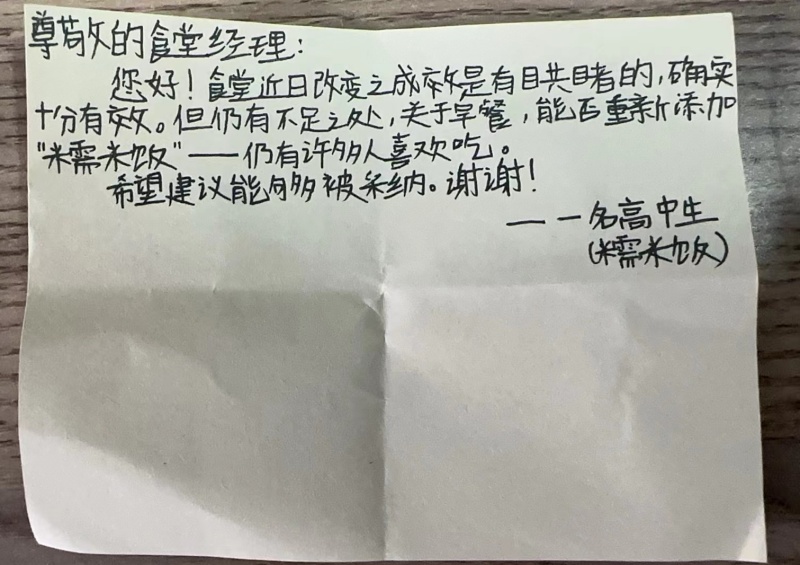 尊敬的食堂经理：
您好！食堂近日改变之成效是有目共睹的，确实
十分有效。但仍有不足之处，关于早餐，能否重新添加
“糯米饭”——仍有许多人喜欢吃。
希望建议能够被采纳。谢谢！
——一名高中生
（糯米饭）